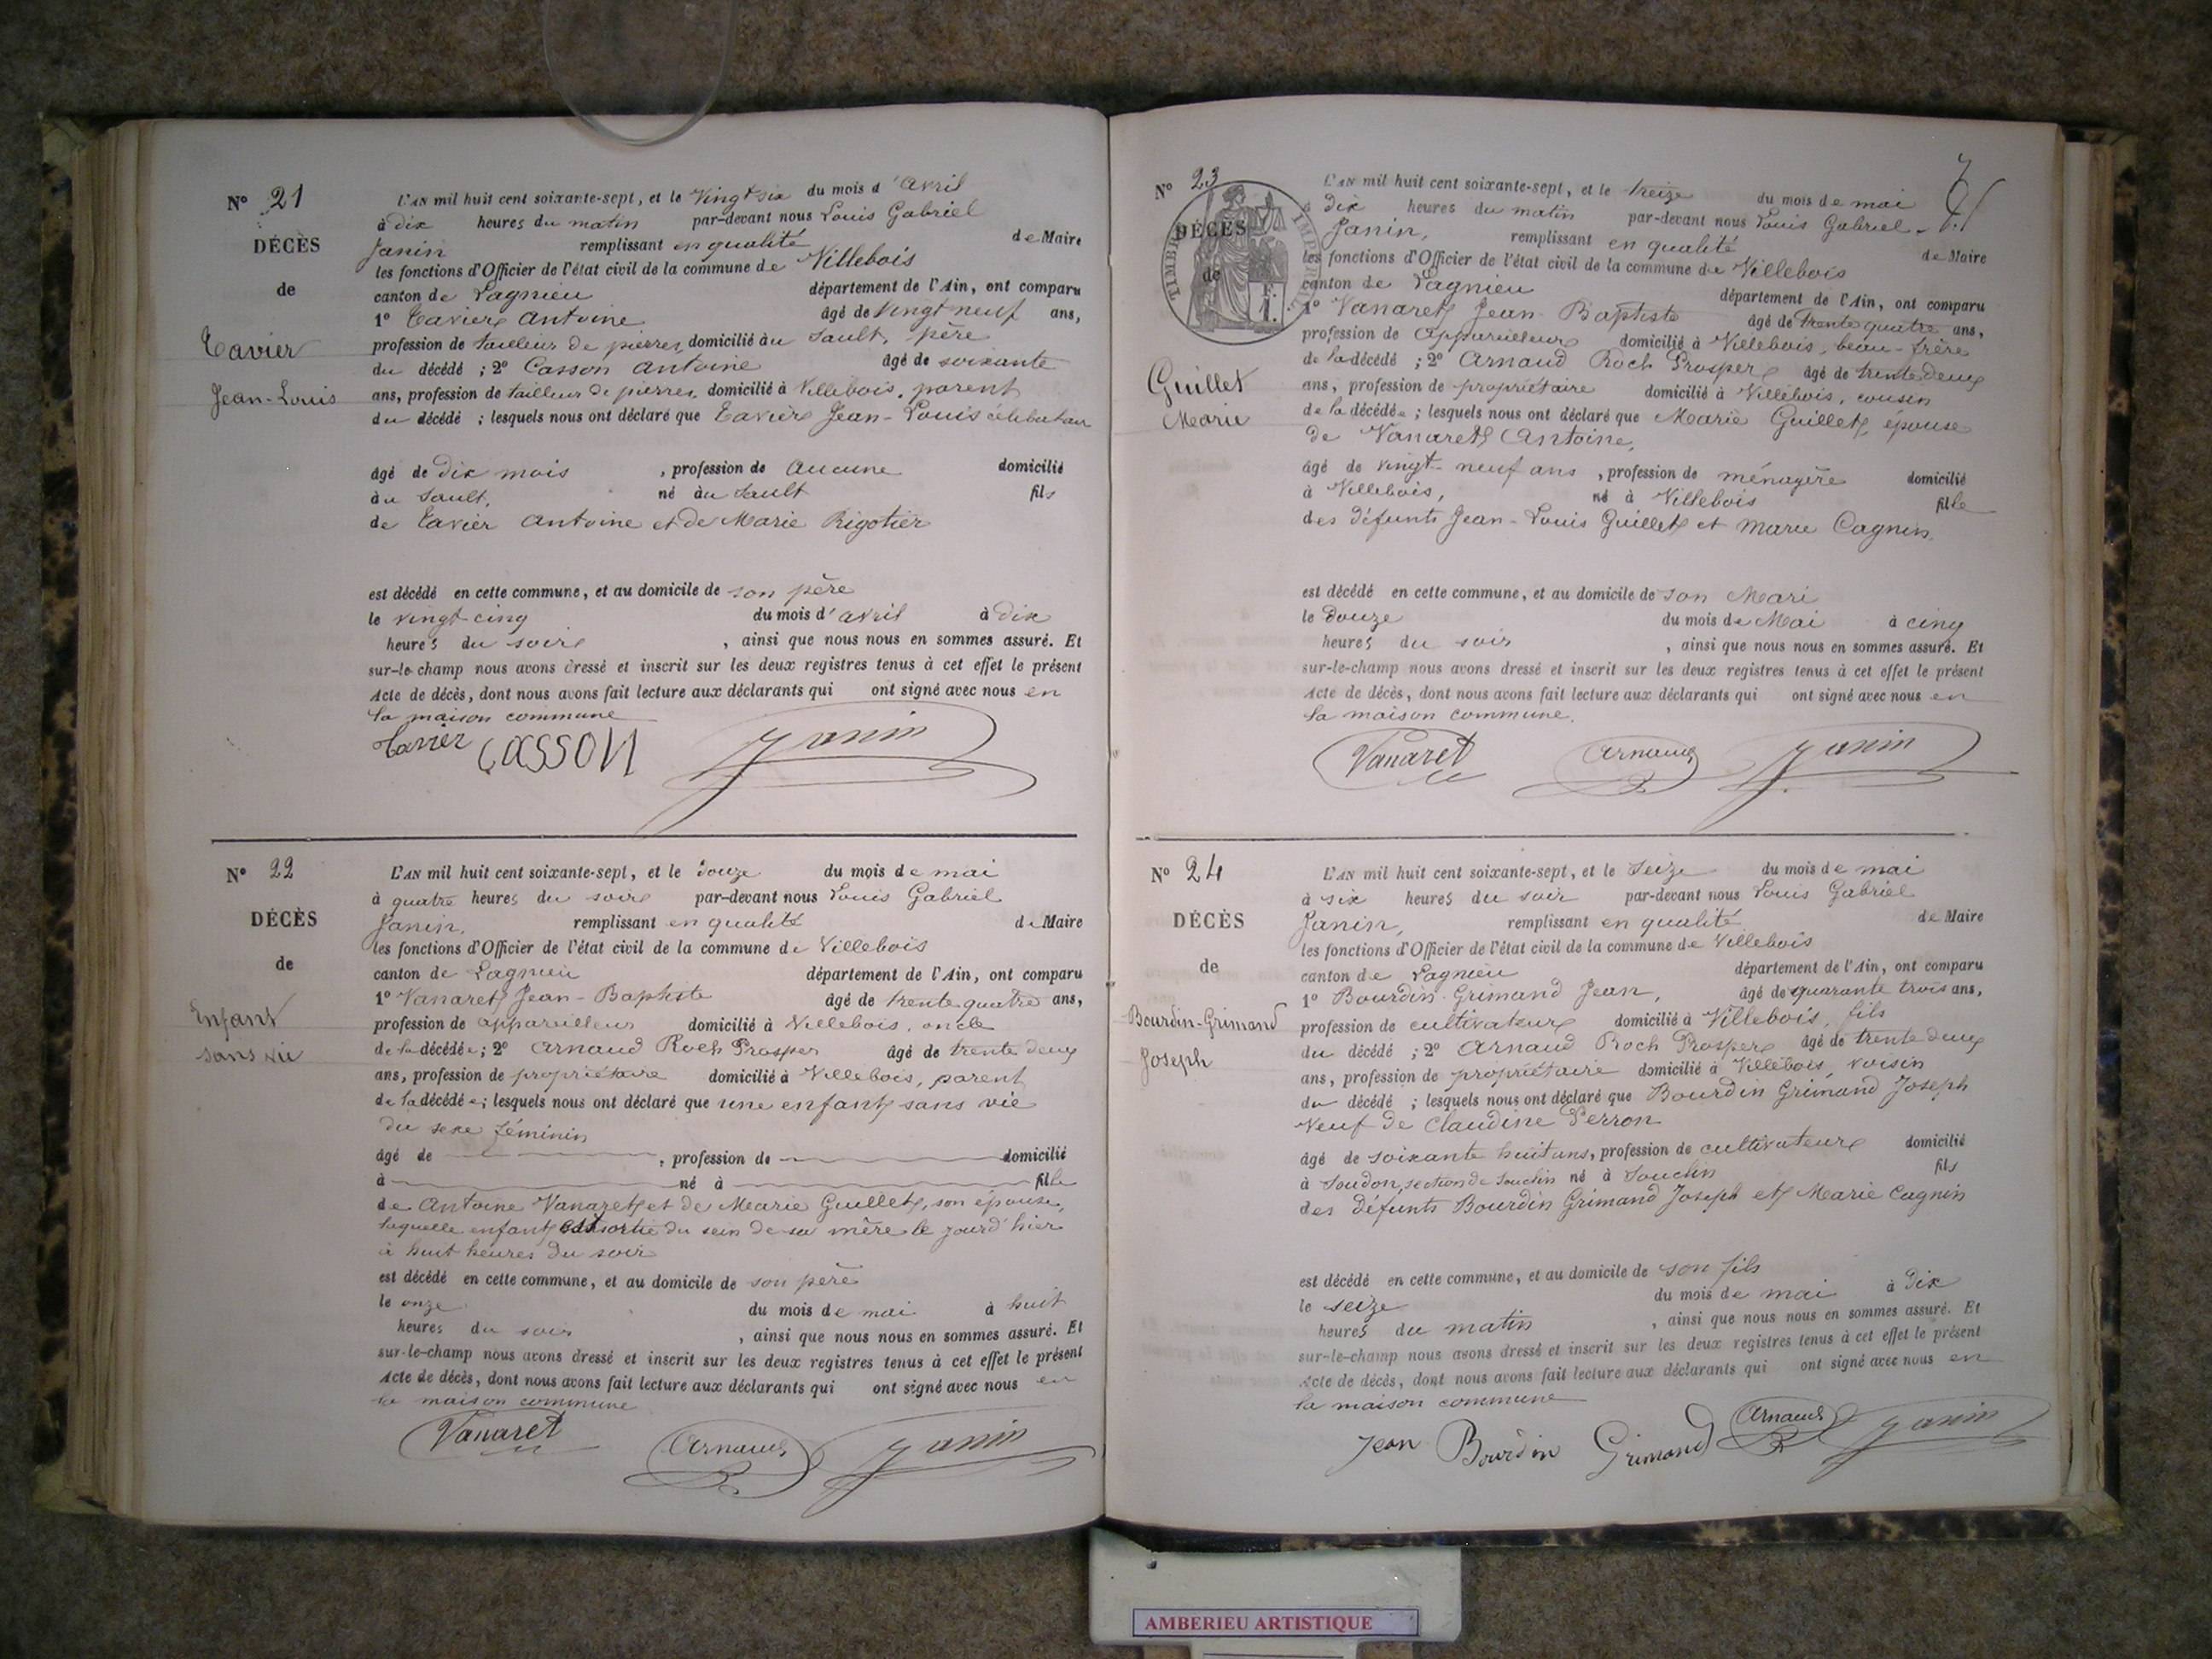 N° 21
DÉCÈS
de
Tavier
Jean-Louis
L'AN mil huit cent soixante-sept, et le Vingt six du mois d'avril
à dix heures du matin par-devant nous Louis Gabriel
Janin remplissant en qualité de Maire
les fonctions d'Officier de l'état civil de la commune de Villebois
canton de Lagnieu département de l'Ain, ont comparu
1° Tavier Antoine âgé de Vingt neuf ans,
profession de tailleur de pierres, domicilié au Sault, père
du décédé ; 2° Casson Antoine âgé de soixante
ans, profession de tailleur de pierres, domicilié à Villebois, parent
du décédé ; lesquels nous ont déclaré que Tavier Jean-Louis célibataire
âgé de dix mois , profession de Aucune domicilié
au Sault, né au Sault fils
de Tavier Antoine et de Marie Rigotier
est décédé en cette commune, et au domicile de son père
le vingt-cinq du mois d'avril à dix
heures du soir , ainsi que nous nous en sommes assuré. Et
sur-le-champ nous avons dressé et inscrit sur les deux registres tenus à cet effet le présent
Acte de décès, dont nous avons fait lecture aux déclarants qui ont signé avec nous en
la maison commune
Tavier CASSON Janin
N° 22
DÉCÈS
de
Enfant
sans vie
L'AN mil huit cent soixante-sept, et le douze du mois de mai
à quatre heures du soir par-devant nous Louis Gabriel
Janin, remplissant en qualité de Maire
les fonctions d'Officier de l'état civil de la commune de Villebois
canton de Lagnieu département de l'Ain, ont comparu
1° Vanaret Jean-Baptiste âgé de trente quatre ans,
profession de appareilleur domicilié à Villebois, oncle
de la décédée ; 2° Arnaud Roch Prosper âgé de trente deux
ans, profession de propriétaire domicilié à Villebois, parent
de la décédée ; lesquels nous ont déclaré que une enfant sans vie
du sexe féminin
âgé de , profession de domicilié
à né à fille
de Antoine Vanaret et de Marie Guillet, son épouse,
laquelle enfant est sortie du sein de sa mère le jourd'hier
à huit heures du soir
est décédé en cette commune, et au domicile de son père
le onze du mois de mai à huit
heures du soir , ainsi que nous nous en sommes assuré. Et
sur-le-champ nous avons dressé et inscrit sur les deux registres tenus à cet effet le présent
Acte de décès, dont nous avons fait lecture aux déclarants qui ont signé avec nous en
la maison commune
Vanaret Arnaud Janin
7
N° 23
TIMBRE IMPÉRIAL
DÉCÈS
de
Guillet
Marie
L'AN mil huit cent soixante-sept, et le treize du mois de mai
à dix heures du matin par-devant nous Louis Gabriel
Janin, remplissant en qualité de Maire
les fonctions d'Officier de l'état civil de la commune de Villebois
canton de Lagnieu département de l'Ain, ont comparu
1° Vanaret Jean Baptiste âgé de trente quatre ans,
profession de appareilleur domicilié à Villebois, beau-frère
de la décédé ; 2° Arnaud Roch Prosper âgé de trente deux
ans, profession de propriétaire domicilié à Villebois, cousin
de la décédée ; lesquels nous ont déclaré que Marie Guillet, épouse
de Vanaret Antoine,
âgé de vingt-neuf ans , profession de ménagère domicilié
à Villebois, né à Villebois fille
des défunts Jean-Louis Guillet et Marie Cagnin
est décédé en cette commune, et au domicile de son Mari
le Douze du mois de Mai à cinq
heures du soir , ainsi que nous nous en sommes assuré. Et
sur-le-champ nous avons dressé et inscrit sur les deux registres tenus à cet effet le présent
Acte de décès, dont nous avons fait lecture aux déclarants qui ont signé avec nous en
la maison commune.
Vanaret Arnaud Janin
N° 24
DÉCÈS
de
Bourdin-Grimand
Joseph
L'AN mil huit cent soixante-sept, et le Seize du mois de mai
à six heures du soir par-devant nous Louis Gabriel
Janin, remplissant en qualité de Maire
les fonctions d'Officier de l'état civil de la commune de Villebois
canton de Lagnieu département de l'Ain, ont comparu
1° Bourdin-Grimand Jean, âgé de quarante trois ans,
profession de cultivateur domicilié à Villebois, fils
du décédé ; 2° Arnaud Roch Prosper âgé de trente deux
ans, profession de propriétaire domicilié à Villebois, voisin
du décédé ; lesquels nous ont déclaré que Bourdin Grimand Joseph
Veuf de Claudine Perron
âgé de soixante huit ans, profession de cultivateur domicilié
à Soudon, section de Souclin né à Souclin fils
des défunts Bourdin Grimand Joseph et Marie Cagnin
est décédé en cette commune, et au domicile de son fils
le seize du mois de mai à Dix
heures du matin , ainsi que nous nous en sommes assuré. Et
sur-le-champ nous avons dressé et inscrit sur les deux registres tenus à cet effet le présent
Acte de décès, dont nous avons fait lecture aux déclarants qui ont signé avec nous en
la maison commune
Jean Bourdin Grimand Arnaud Janin
AMBERIEU ARTISTIQUE